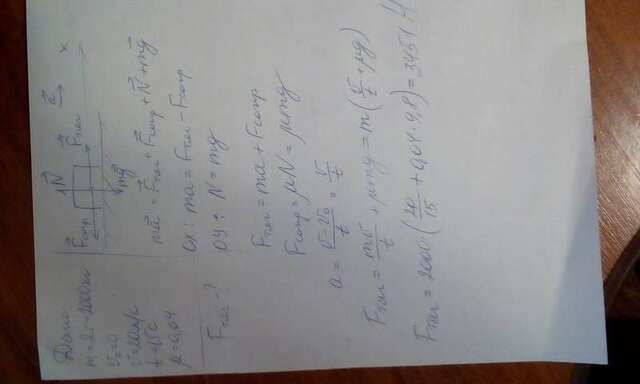 Дано
m=2т=2000кг
v₀=0
v=20м/с
t=15с
μ=0,04
Fтяг-?
Fсопр N Fтяг a x
mg
ma = Fтяг + Fсопр + N + mg
Ox: ma = Fтяг - Fсопр
Oy: N = mg
Fтяг = ma + Fсопр
Fсопр = μN = μmg
a = (v-v₀)/t = v/t
Fтяг = mv/t + μmg = m(v/t + μg)
Fтяг = 2000(20/15 + 0,04·9,8) = 3451 Н